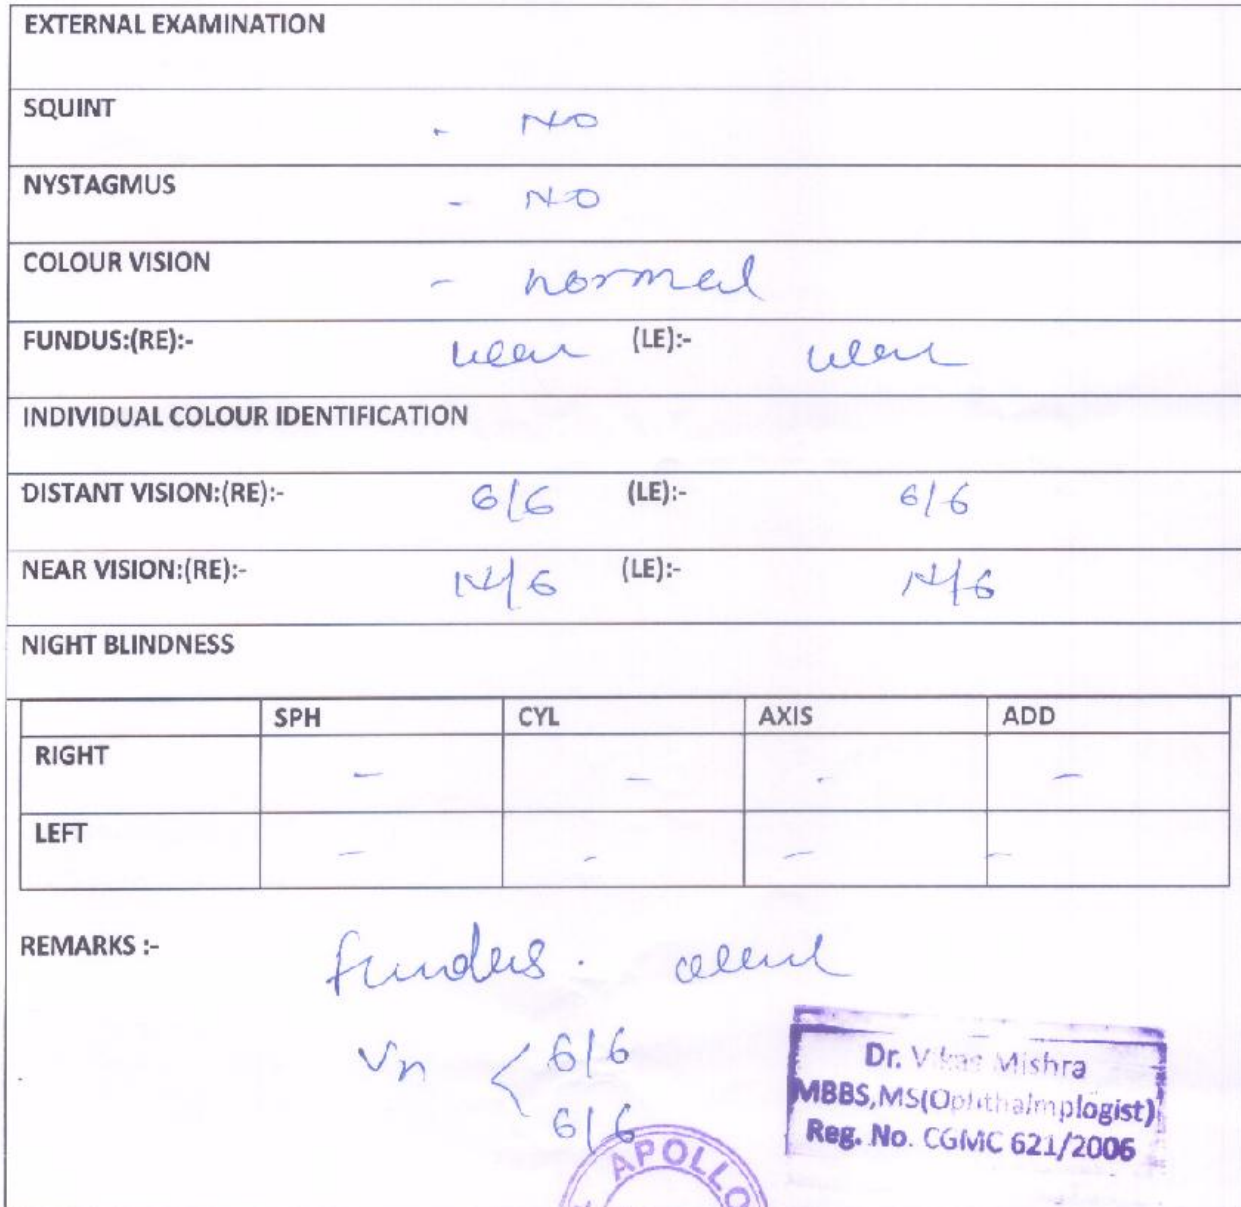 EXTERNAL EXAMINATION
SQUINT - NO
NYSTAGMUS - NO
COLOUR VISION - normal
FUNDUS:(RE):- clear (LE):- clear
INDIVIDUAL COLOUR IDENTIFICATION
DISTANT VISION:(RE):- 6/6 (LE):- 6/6
NEAR VISION:(RE):- N/6 (LE):- N/6
NIGHT BLINDNESS
SPH CYL AXIS ADD
RIGHT - - - -
LEFT - - - -
REMARKS :- fundus. clear
Vn < 6/6
6/6
Dr. Vikas Mishra
MBBS,MS(Ophthalmplogist)
Reg. No. CGMC 621/2006
APOLLO